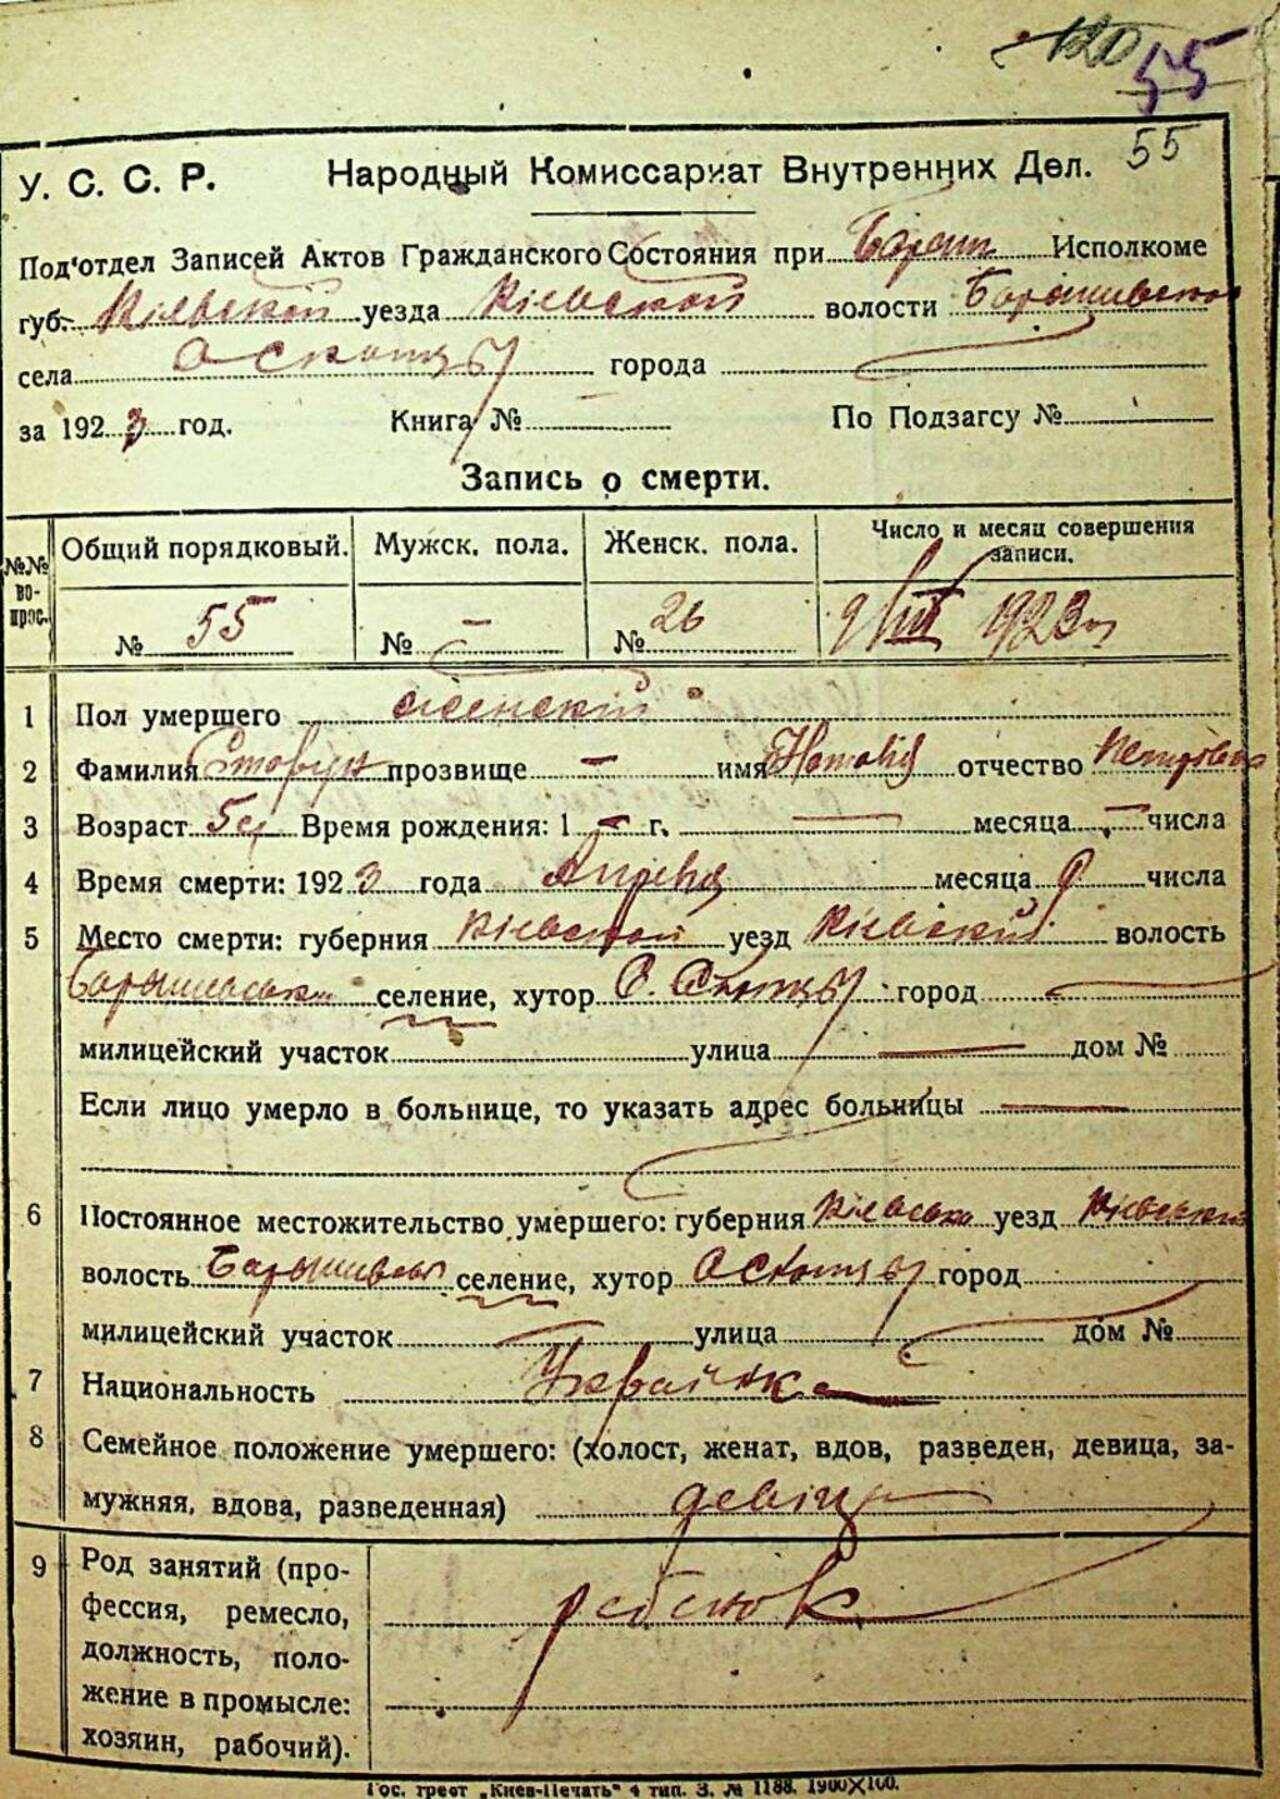 120
55
55
У. С. С. Р. Народный Комиссариат Внутренних Дел.
Под'отдел Записей Актов Гражданского Состояния при Бориш Исполкоме
губ. Кіевской уезда Кіевской волости
села города
за 1923 год. Книга № По Подзагсу №
Запись о смерти.
№№ вопрос. Общий порядковый. Мужск. пола. Женск. пола. Число и месяц совершения записи.
№ 55 № — № 26 9/IV 1923 г.
1 Пол умершего женскій
2 Фамилия прозвище — имя Наталія отчество Петровна
3 Возраст Время рождения: 1 — г. — месяца — числа
4 Время смерти: 1923 года Апреля месяца 9 числа
5 Место смерти: губерния Кіевской уезд Кіевский волость
селение, хутор город
милицейский участок улица — дом №
Если лицо умерло в больнице, то указать адрес больницы —
6 Постоянное местожительство умершего: губерния Кіевська уезд Кіевський
волость селение, хутор город
милицейский участок улица дом №
7 Национальность Украінка
8 Семейное положение умершего: (холост, женат, вдов, разведен, девица, за-
мужняя, вдова, разведенная) девица
9 Род занятий (про-
фессия, ремесло,
должность, поло-
жение в промысле:
хозяин, рабочий).
ребенок
Гос. трест „Киев-Печать" 4 тип. З. № 1188. 1900×100.